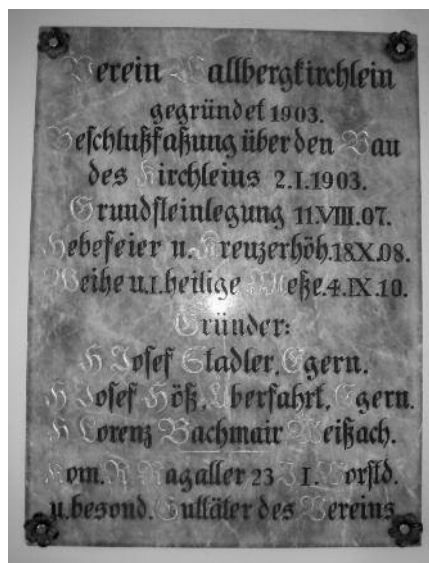 Verein Wallbergkirchlein
gegründet 1903.
Beschlußfaßung über den Bau
des Kirchleins 2.I.1903.
Grundsteinlegung 11.VIII.07.
Hebefeier u. Kreuzerhöh. 18.X.08.
Weihe u. I. heilige Meße. 4.IX.10.
Gründer:
H Josef Stadler, Egern.
H Josef Höß, Überfahrt, Egern.
H Lorenz Bachmair Weißach.
Kom. R. Magaller 23 J I. Vorstd.
u. besond. Guttäter des Vereins